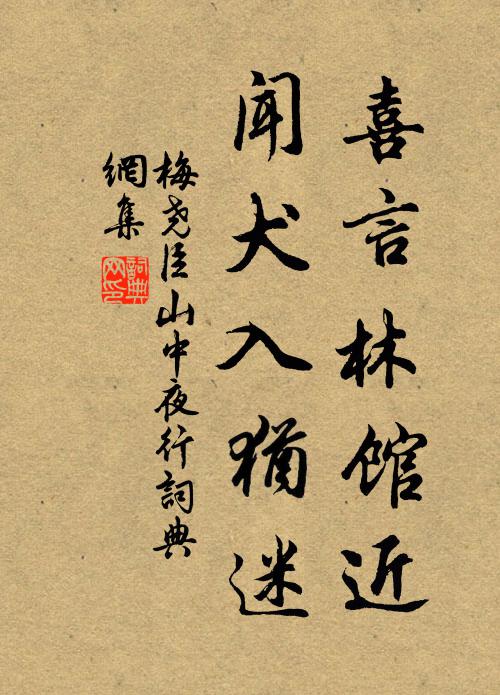 喜言林館近
聞犬入猶迷
梅堯臣山中夜行詞典
網集
詞典
网印